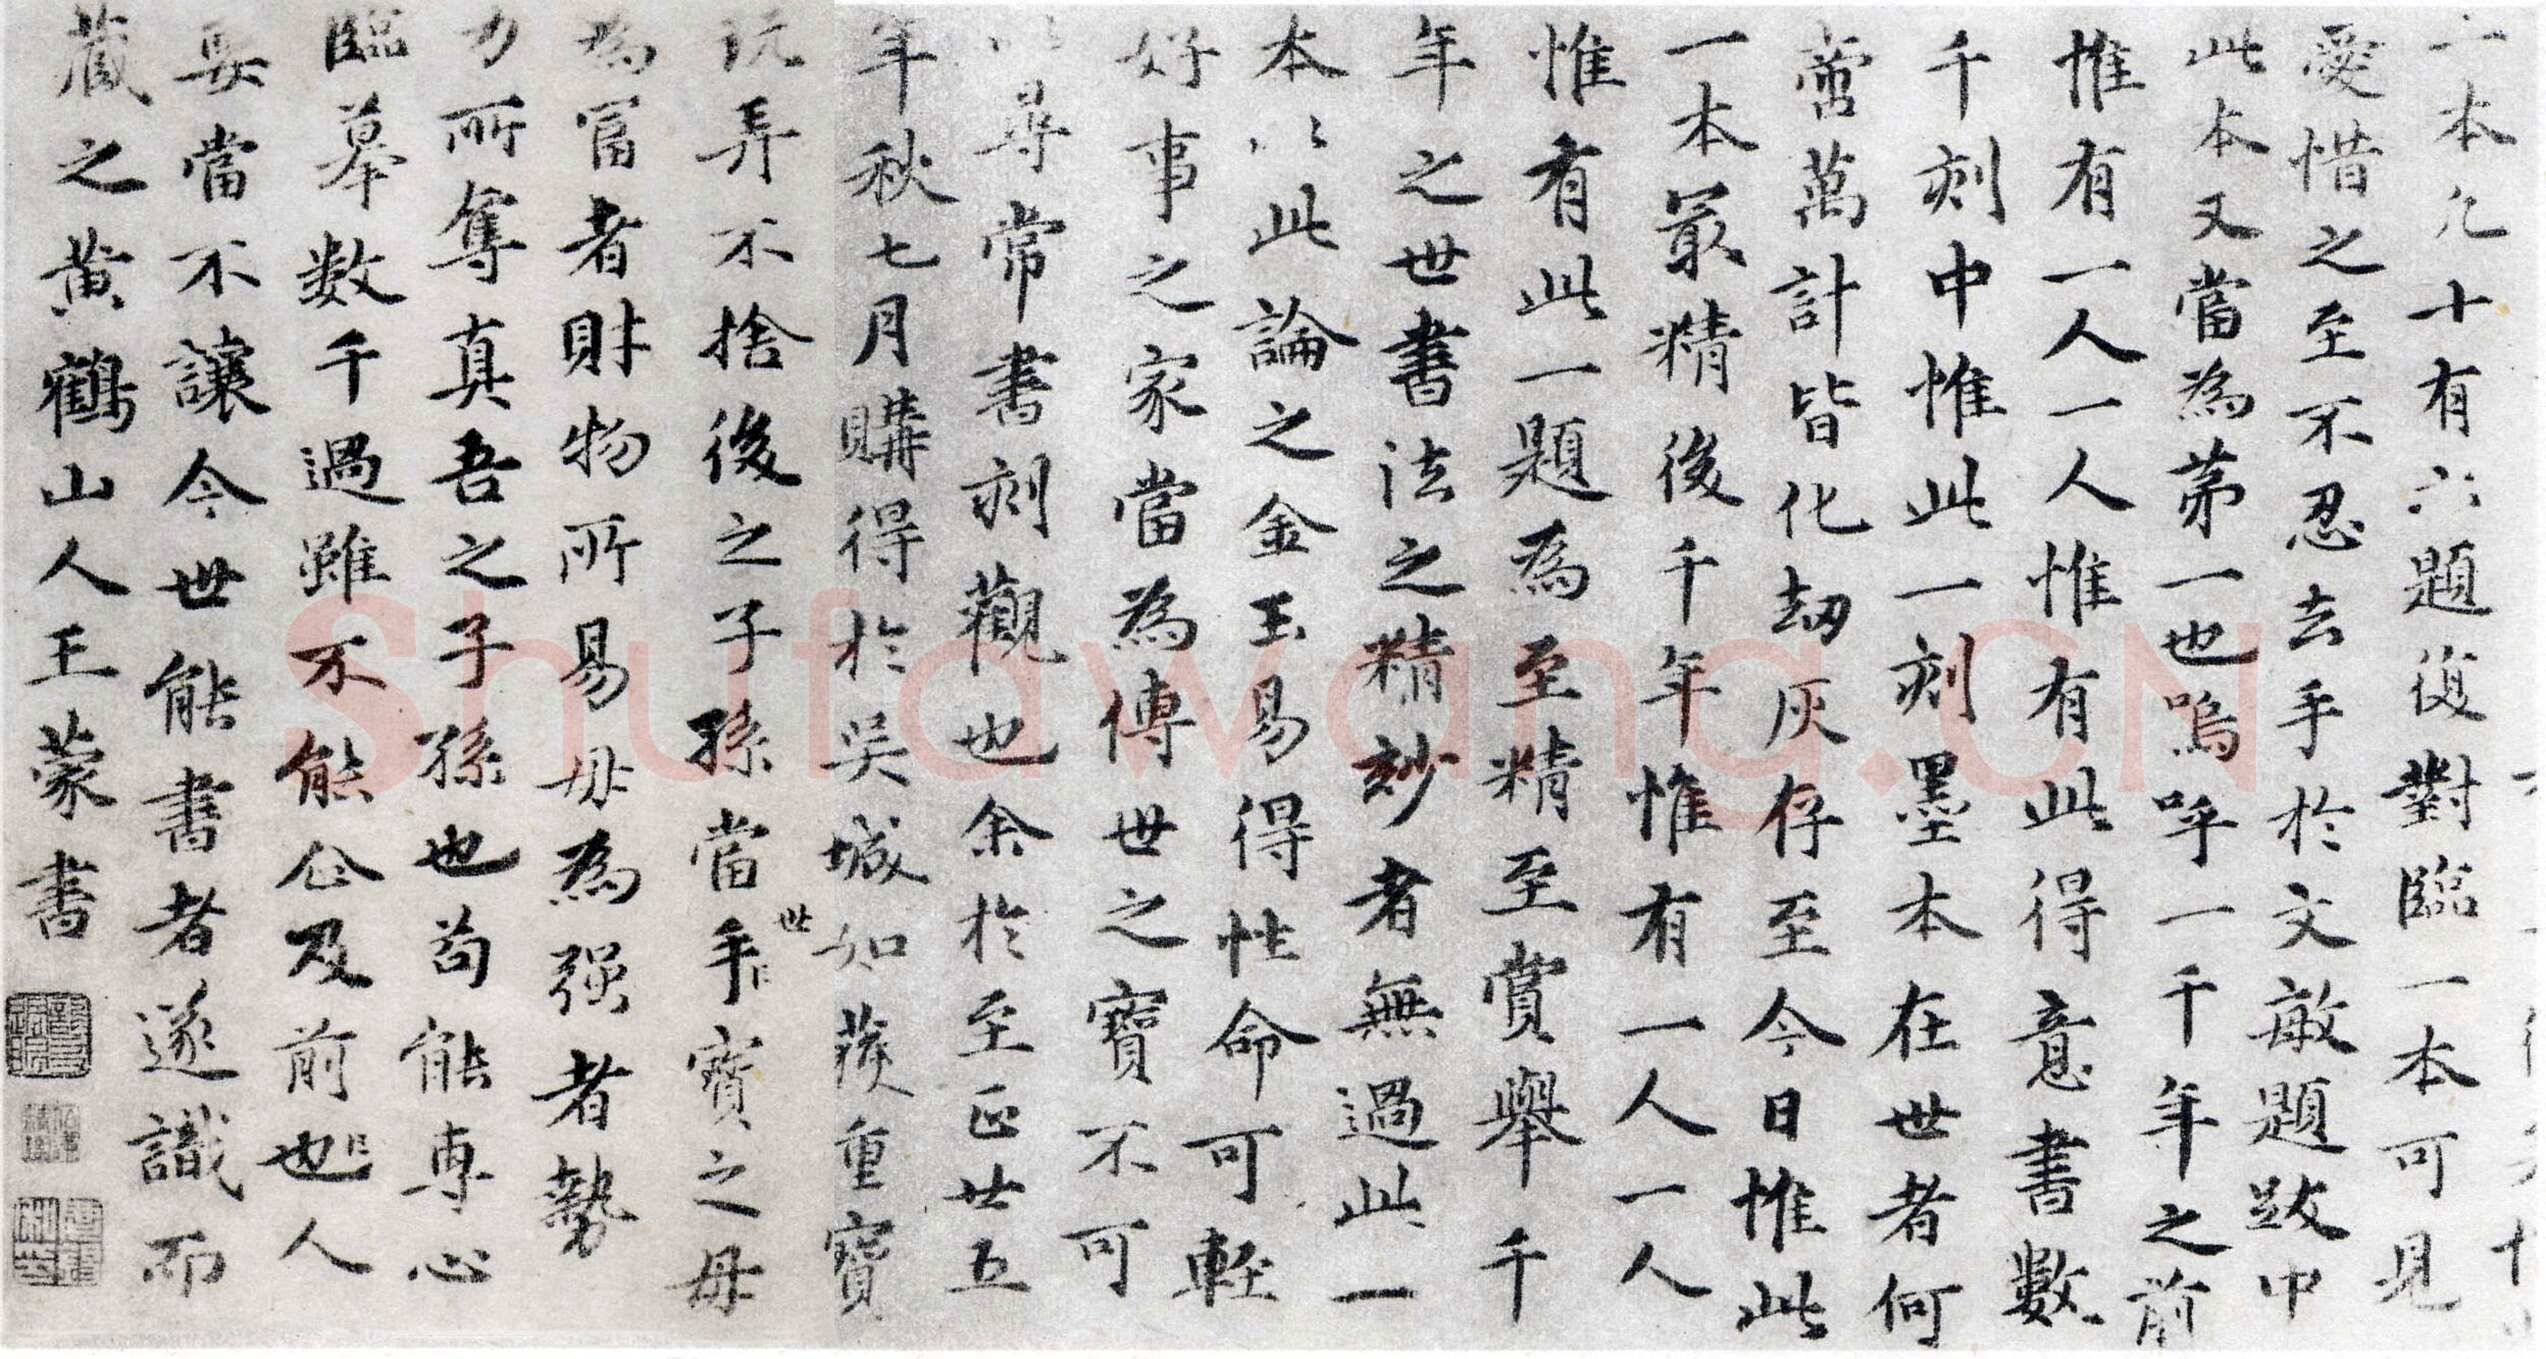 本凡十有六題復對臨一本可見
愛惜之至不忍去手於文敏題跋中
此本又當為第一也嗚呼一千年之前
惟有一人一人惟有此得意書數
千刻中惟此一刻墨本在世者何
啻萬計皆化劫灰存至今日惟此
一本最精後千年惟有一人一人
惟有此一題為至精至賞舉千
年之世書法之精妙者無過此一
本以此論之金玉易得性命可輕
好事之家當為傳世之寶不可
以尋常書刻觀也余於至正廿五
年秋七月購得於吳城如獲重寶
玩弄不捨後之子孫當世手寶之毋
為富者財物所易毋為強者勢
力所奪真吾之子孫也苟能專心
臨摹數千過雖不能企及前也人
要當不讓今世能書者遂識而
藏之黃鶴山人王蒙書
Shufawang.CN